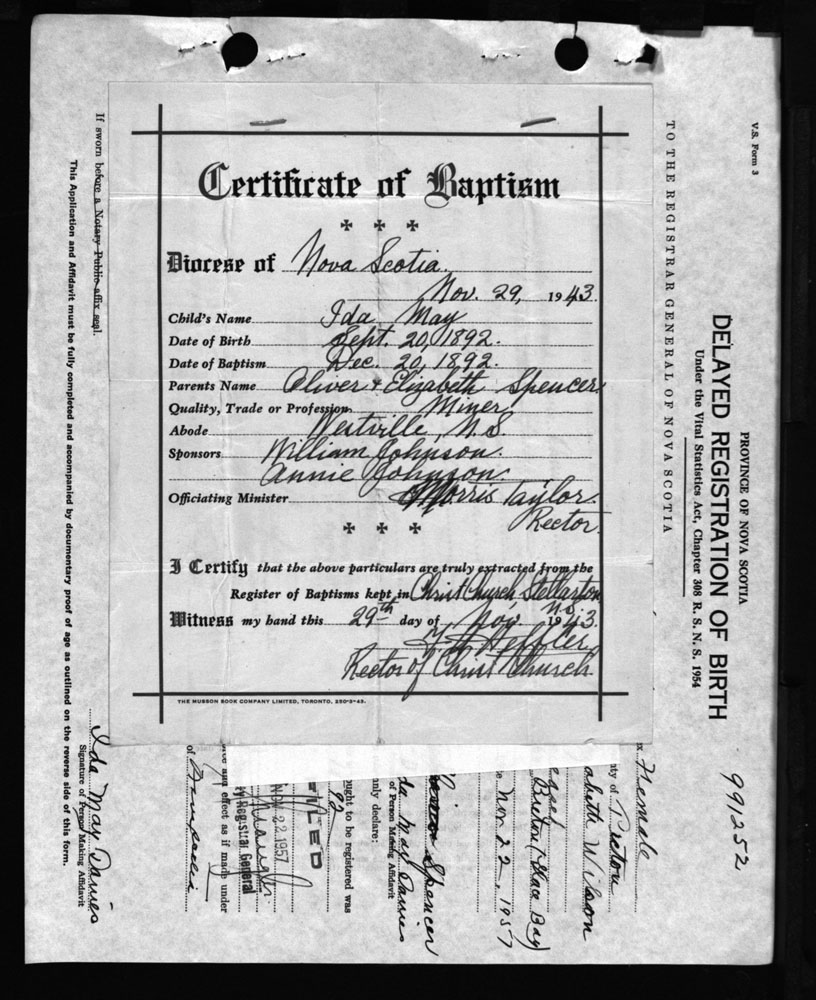 Certificate of Baptism
Diocese of Nova Scotia.
Nov. 29, 1943.
Child's Name Ida May
Date of Birth Sept. 20, 1892.
Date of Baptism Dec. 20, 1892.
Parents Name Oliver & Elizabeth Spencer.
Quality, Trade or Profession Miner.
Abode Westville, N.S.
Sponsors William Johnson.
Annie Johnson
Officiating Minister Morris Taylor.
Rector
I Certify that the above particulars are truly extracted from the
Register of Baptisms kept in Christ Church Stellarton
N.S.
Witness my hand this 29th day of Nov. 1943.
Rector of Christ Church
THE MUSSON BOOK COMPANY LIMITED, TORONTO, 250-3-43.
V.S. Form 3
PROVINCE OF NOVA SCOTIA
DELAYED REGISTRATION OF BIRTH
Under the Vital Statistics Act, Chapter 308 R. S. N. S. 1954
TO THE REGISTRAR GENERAL OF NOVA SCOTIA
991252
Female
ty of Pictou
abeth Wilson
Breton (Glace Bay)
Nov 22, 1957
Spencer
da May Davies
of Person Making Affidavit
nly declare:
ought to be registered was
92
FILED
NOV 22 1957
y Registrar General
orce and effect as if made under
of
Ida May Davies
Signature of Person Making Affidavit
If sworn before a Notary Public affix seal.
This Application and Affidavit must be fully completed and accompanied by documentary proof of age as outlined on the reverse side of this form.